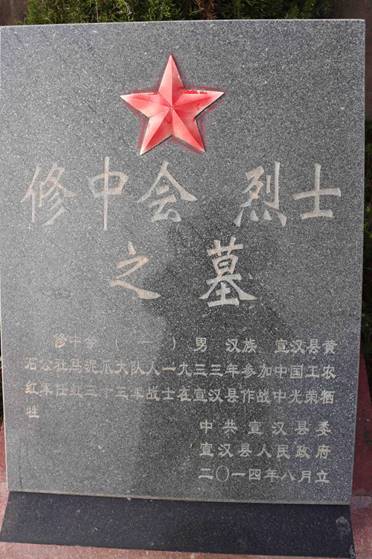 修中会 烈士
之墓
修中会（一）男 汉族 宣汉县黄
石公社马泥爪大队人一九三三年参加中国工农
红军任红三十三军战士在宣汉县作战中光荣牺
牲
中共宣汉县委
宣汉县人民政府
二〇一四年八月立